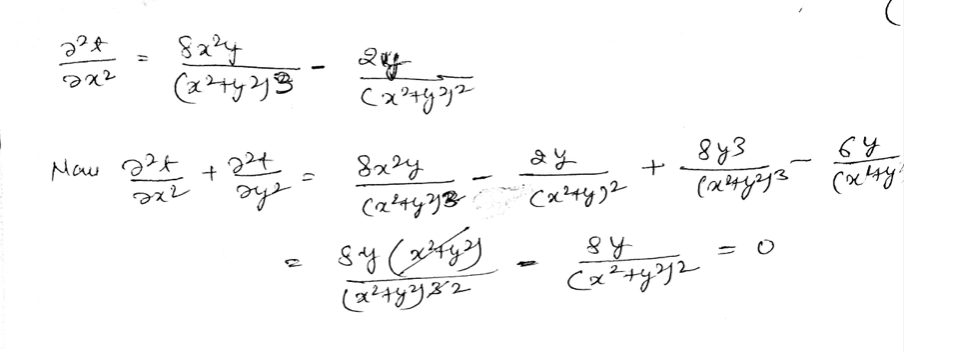 ∂²t/∂x² = 8x²y/(x²+y²)3 - 2y/(x²+y²)²
Now ∂²t/∂x² + ∂²t/∂y² = 8x²y/(x²+y²)3 - 2y/(x²+y²)² + 8y3/(x²+y²)3 - 6y/(x²+y
= 8y(x²+y²)/(x²+y²)3 2 - 8y/(x²+y²)² = 0